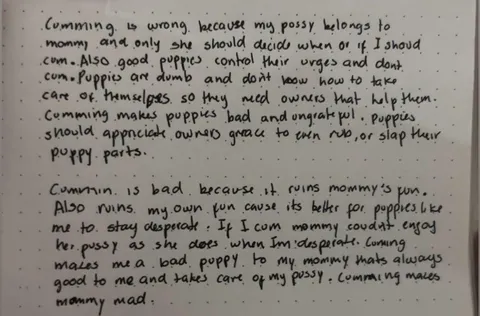 Cumming is wrong because my pussy belongs to
mommy and only she should decide when or if I shoud
cum. Also good puppies control their urges and dont
cum. Puppies are dumb and dont know how to take
care of themselfes so they need owners that help them.
Cumming makes puppies bad and ungrateful. Puppies
should appriciate owners grace to even rub, or slap their
puppy parts.
Cummin is bad because it ruins mommy's fun.
Also ruins my own fun cause its better for puppies like
me to stay desperate. If I cum mommy coudnt enjoy
her pussy as she does when Im desperate. Cuming
maces me a bad puppy to my mommy thats always
good to me and takes care of my pussy. Cumming maces
mommy mad.